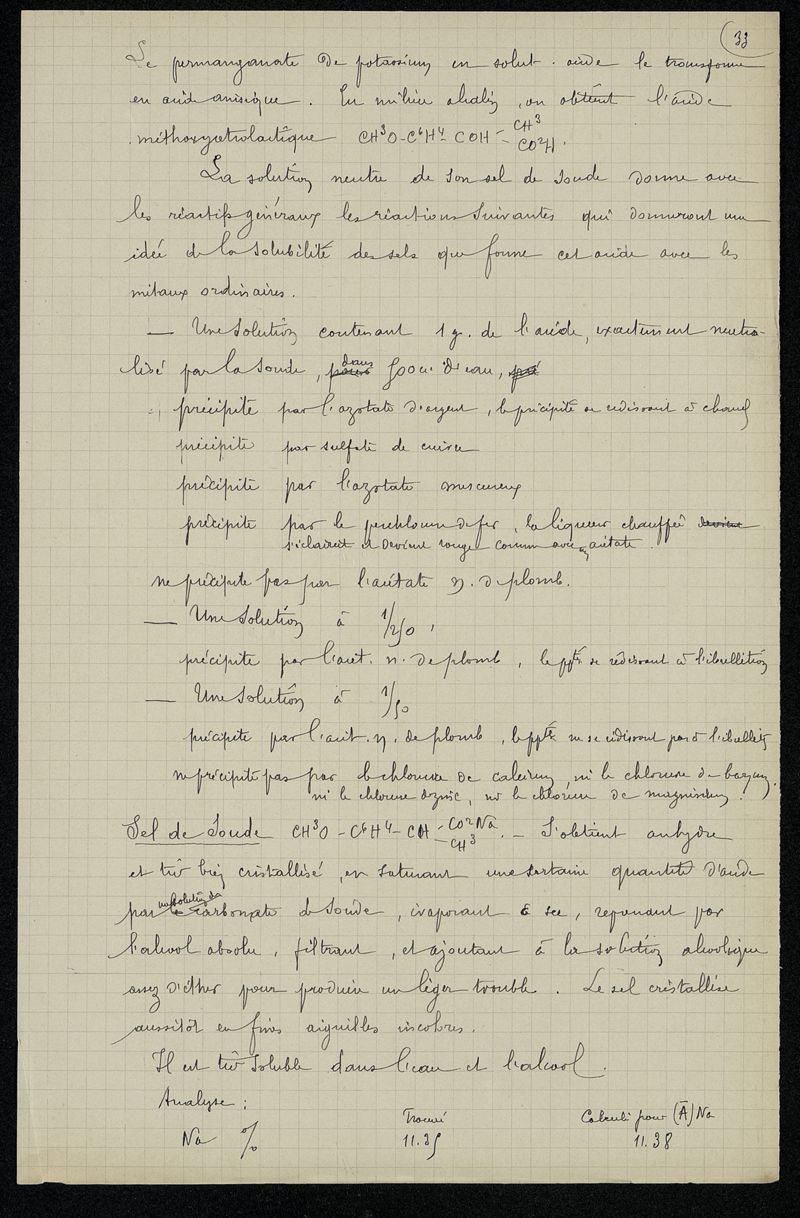 33
Le permanganate de potassium en solut. acide le transforme
en acide anisique. En milieu alcalin, on obtient l'acide
méthoxyatrolactique CH³O-C⁶H⁴-COH-CH³
CO²H.
La solution neutre de son sel de soude donne avec
les réactifs généraux les réactions suivantes qui donneront une
idée de la solubilité des sels que forme cet acide avec les
métaux ordinaires.
— Une solution contenant 1 g. de l'acide, exactement neutra-
lisé par la soude, dans 500cc d'eau,
précipite par l'azotate d'argent, le précipité se redissout à chaud
précipite par sulfate de cuivre
précipite par l'azotate mercureux
précipite par le perchlorure de fer, la liqueur chauffée devient
s'éclaircit et devient rouge comme avec un acétate.
ne précipite pas par l'acétate n. de plomb.
— Une solution à 1/250,
précipite par l'acét. n. de plomb, le ppté se redissout à l'ébullition
— Une solution à 1/50
précipite par l'acét. n. de plomb, le ppté ne se redissout pas à l'ébullition
ne précipite pas par le chlorure de calcium, ni le chlorure de baryum,
ni le chlorure de zinc, ni le chlorure de magnésium.
Sel de Soude CH³O-C⁶H⁴-CH-CO²Na
-CH³ . — S'obtient anhydre
et très bien cristallisé, en saturant une certaine quantité d'acide
par une solution de carbonate de soude, évaporant à sec, reprenant par
l'alcool absolu, filtrant, et ajoutant à la solution alcoolique
assez d'éther pour produire un léger trouble. Le sel cristallise
aussitôt en fines aiguilles incolores.
Il est très soluble dans l'eau et l'alcool.
Analyse:
Trouvé Calculé pour (Ā)Na
Na % 11.35 11.38